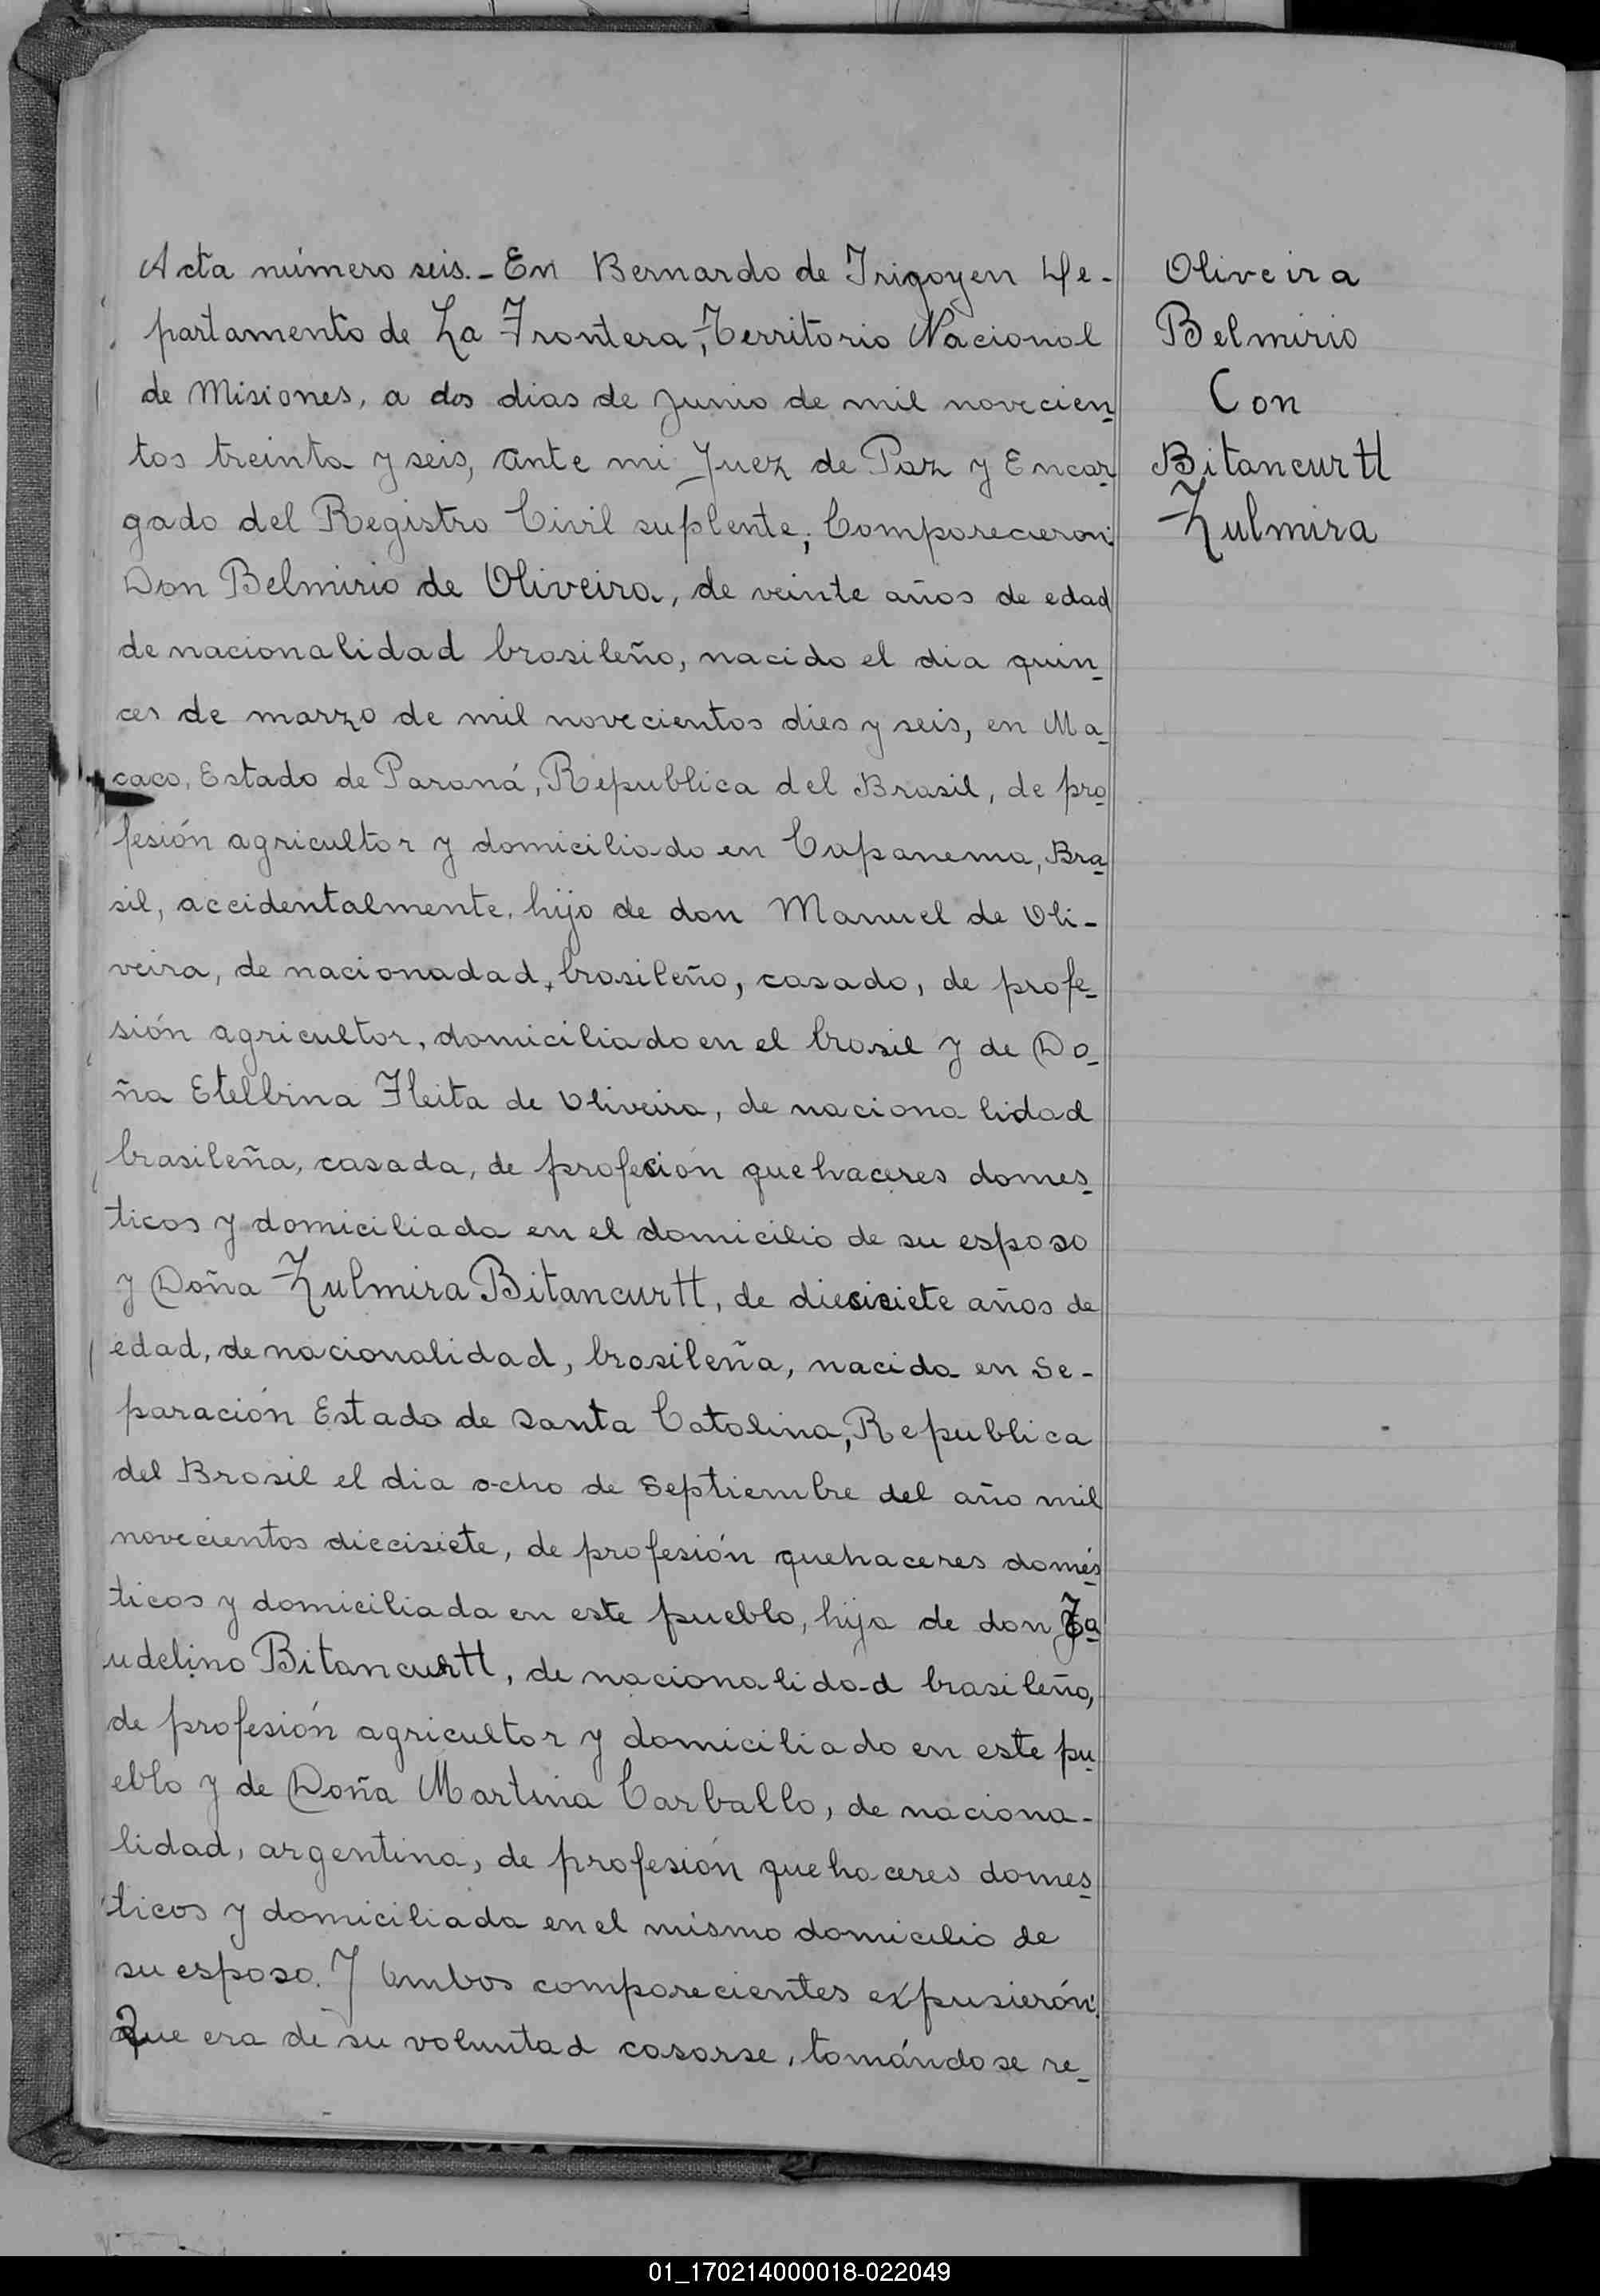 Acta número seis.- En Bernardo de Irigoyen De-
partamento de La Frontera, Territorio Nacional
de Misiones, a dos dias de Junio de mil novecien-
tos treinta y seis, ante mi Juez de Paz y Encar-
gado del Registro Civil suplente; Comparecieron:
Don Belmirio de Oliveira, de veinte años de edad
de nacionalidad brasileño, nacido el dia quin-
ces de marzo de mil novecientos dies y seis, en Ma-
caco, Estado de Paraná, Republica del Brasil, de pro-
fesión agricultor y domiciliado en Capanema, Bra-
sil, accidentalmente, hijo de don Manuel de Oli-
veira, de nacionadad, brasileño, casado, de profe-
sión agricultor, domiciliado en el brasil y de Do-
ña Etelbina Fleita de Oliveira, de nacionalidad
brasileña, casada, de profeción quehaceres domes-
ticos y domiciliada en el domicilio de su esposo
y Doña Zulmira Bitancurtt, de diecisiete años de
edad, de nacionalidad, brasileña, nacida en Se-
paración Estado de Santa Catalina, Republica
del Brasil el dia ocho de Septiembre del año mil
novecientos diecisiete, de profesión quehaceres domés-
ticos y domiciliada en este pueblo, hija de don
udelino Bitancurtt, de nacionalidad brasileño,
de profesión agricultor y domiciliado en este pu-
eblo y de Doña Martina Carballo, de naciona-
lidad, argentina, de profesión quehaceres domes-
ticos y domiciliada en el mismo domicilio de
su esposo. Y Ambos comparecientes expusierón:
Que era de su voluntad casarse, tomándose re-
Oliveira
Belmirio
Con
Bitancurtt
Zulmira
01_170214000018-022049